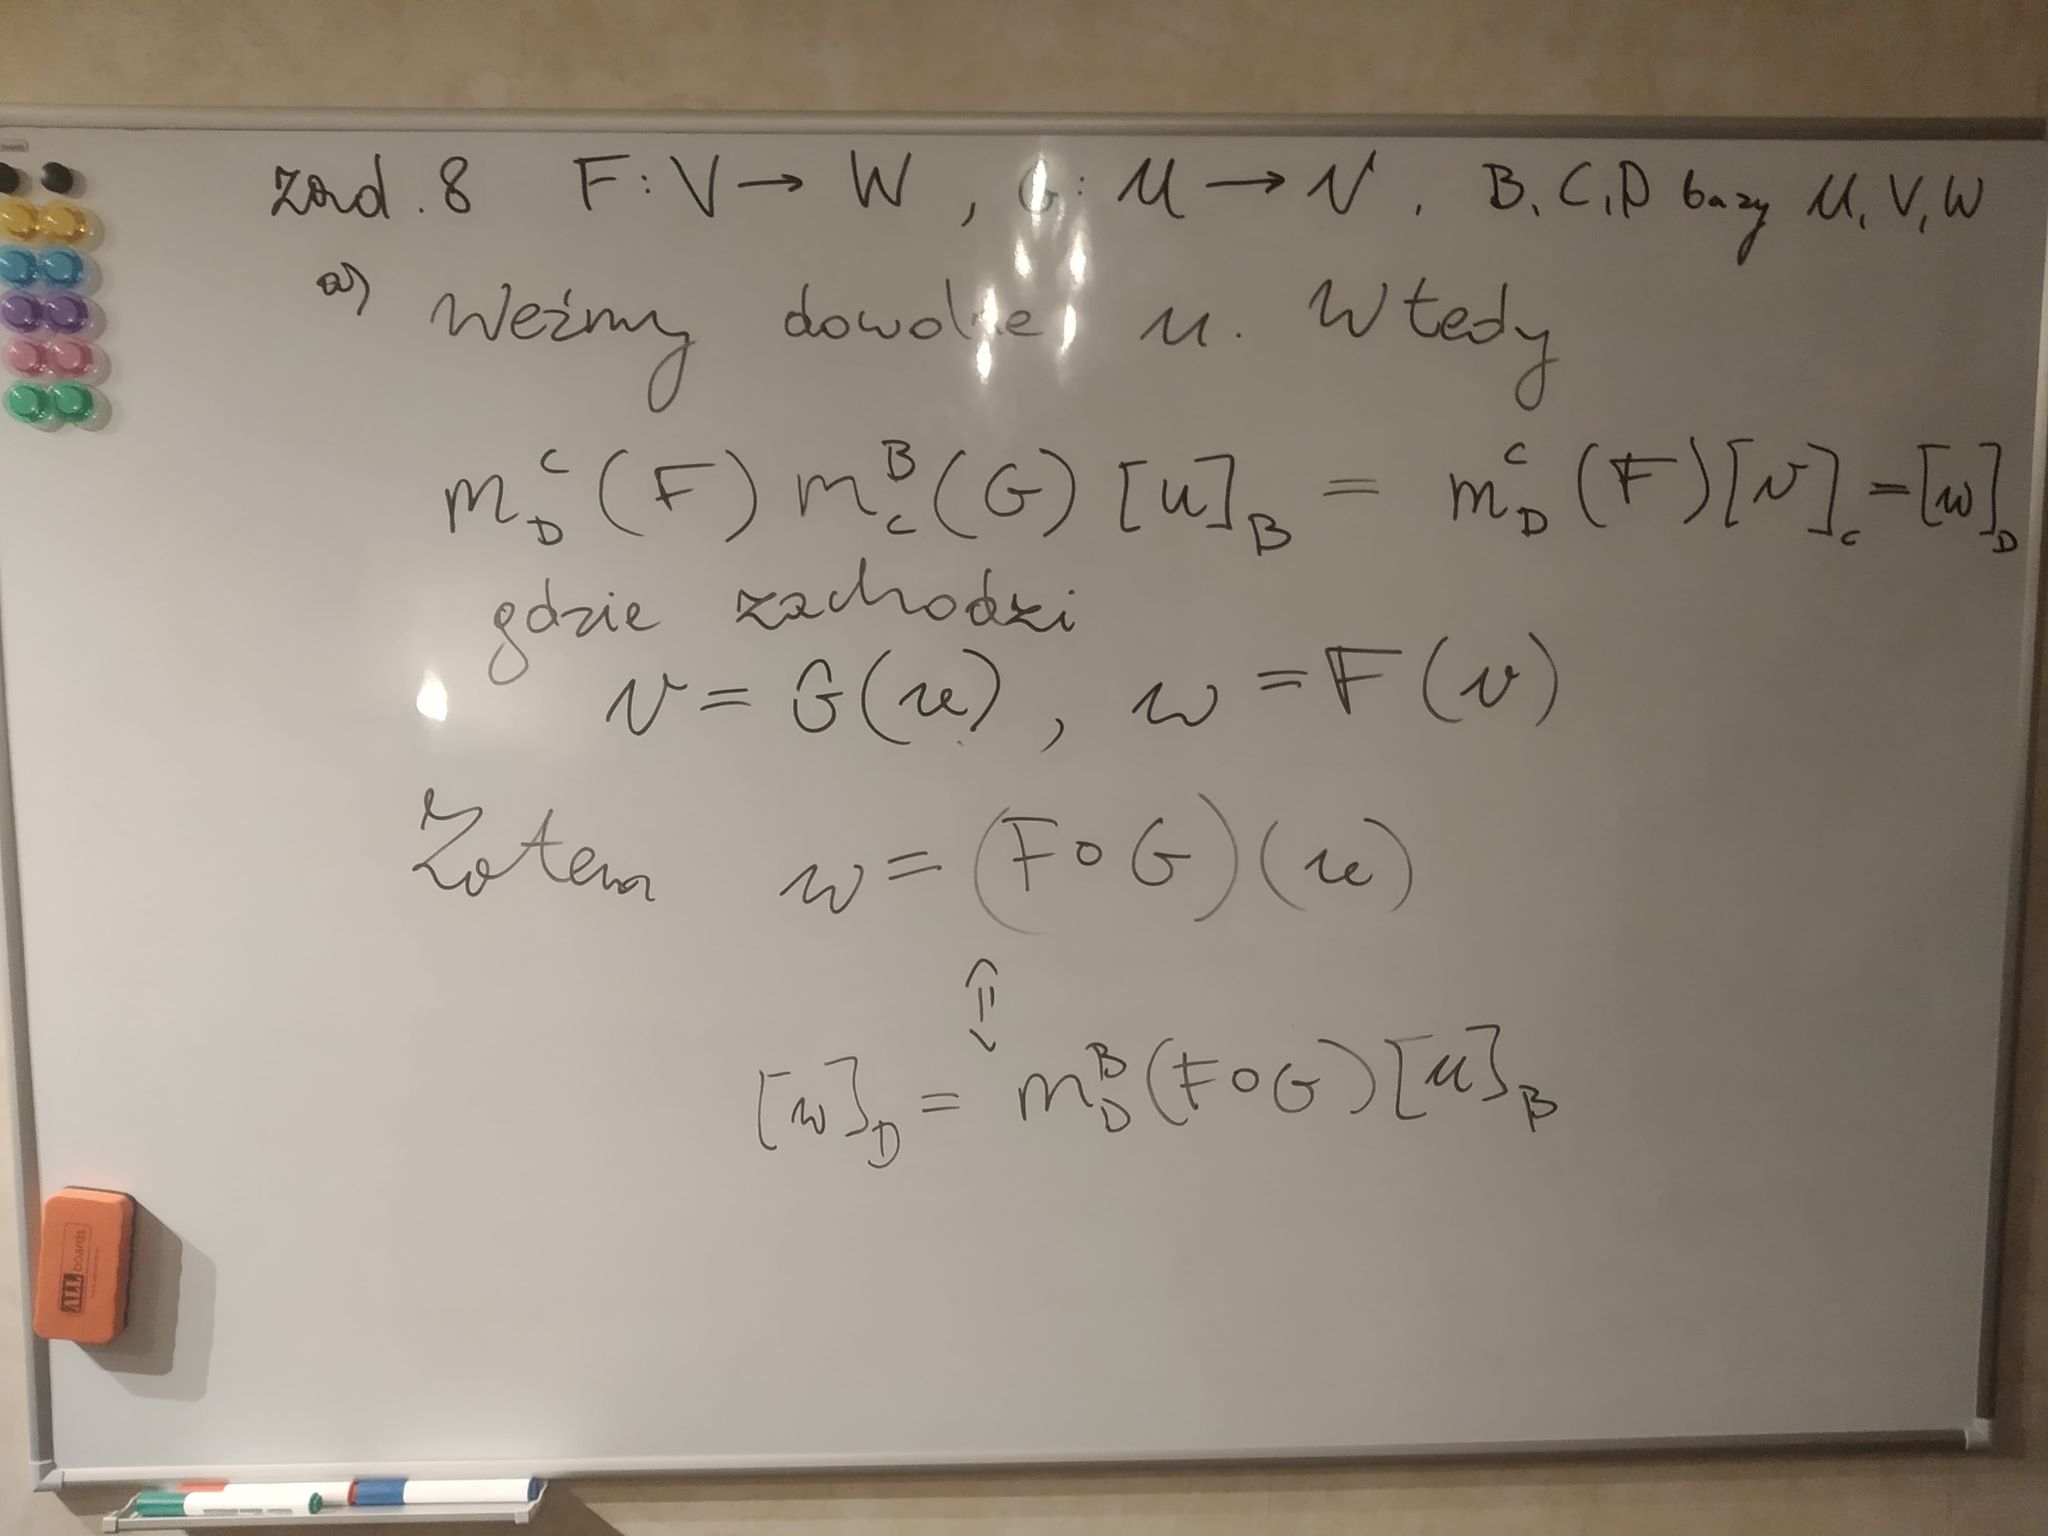 zad. 8 F: V → W, G: U → V. B, C, D bazy U, V, W
a) Weźmy dowolne u. Wtedy
m_D^C (F) m_C^B (G) [u]_B = m_D^C (F) [v]_C = [w]_D
gdzie zachodzi
v = G(u), w = F(v)
Zatem w = (F∘G)(u)
⇕
[w]_D = m_D^B (F∘G) [u]_B
ALLboards